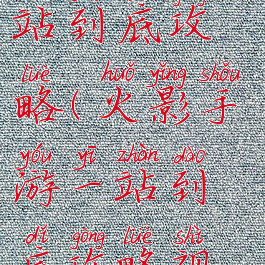 站到底攻
lüè huǒ yǐng shǒu
略(火影手
yóu yī zhàn dào
游一站到
dǐ gōng lüè shì
底攻略视